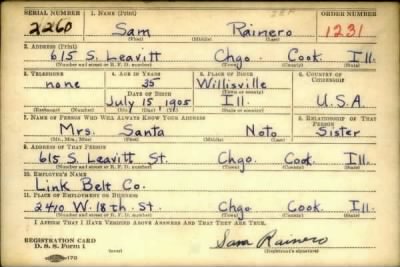 SERIAL NUMBER 1. NAME (Print) ORDER NUMBER
2260 Sam Rainero 1231
(First) (Middle) (Last)
2. ADDRESS (Print)
615 S. Leavitt Chgo. Cook. Ill.
(Number and street or R. F. D. number) (Town) (County) (State)
3. TELEPHONE 4. AGE IN YEARS 5. PLACE OF BIRTH 6. COUNTRY OF CITIZENSHIP
none 35 Willisville
DATE OF BIRTH (Town or county)
July 15, 1905 Ill. U.S.A.
(Exchange) (Number) (Mo.) (Day) (Yr.) (State or country)
7. NAME OF PERSON WHO WILL ALWAYS KNOW YOUR ADDRESS 8. RELATIONSHIP OF THAT PERSON
Mrs. Santa Noto Sister
(Mr., Mrs., Miss) (First) (Middle) (Last)
9. ADDRESS OF THAT PERSON
615 S. Leavitt St. Chgo. Cook. Ill.
(Number and street or R. F. D. number) (Town) (County) (State)
10. EMPLOYER'S NAME
Link Belt Co.
11. PLACE OF EMPLOYMENT OR BUSINESS
2410 W. 18th St. Chgo Cook Ill.
(Number and street or R. F. D. number) (Town) (County) (State)
I AFFIRM THAT I HAVE VERIFIED ABOVE ANSWERS AND THAT THEY ARE TRUE.
REGISTRATION CARD
D. S. S. Form 1 Sam Rainero
(Registrant's signature)